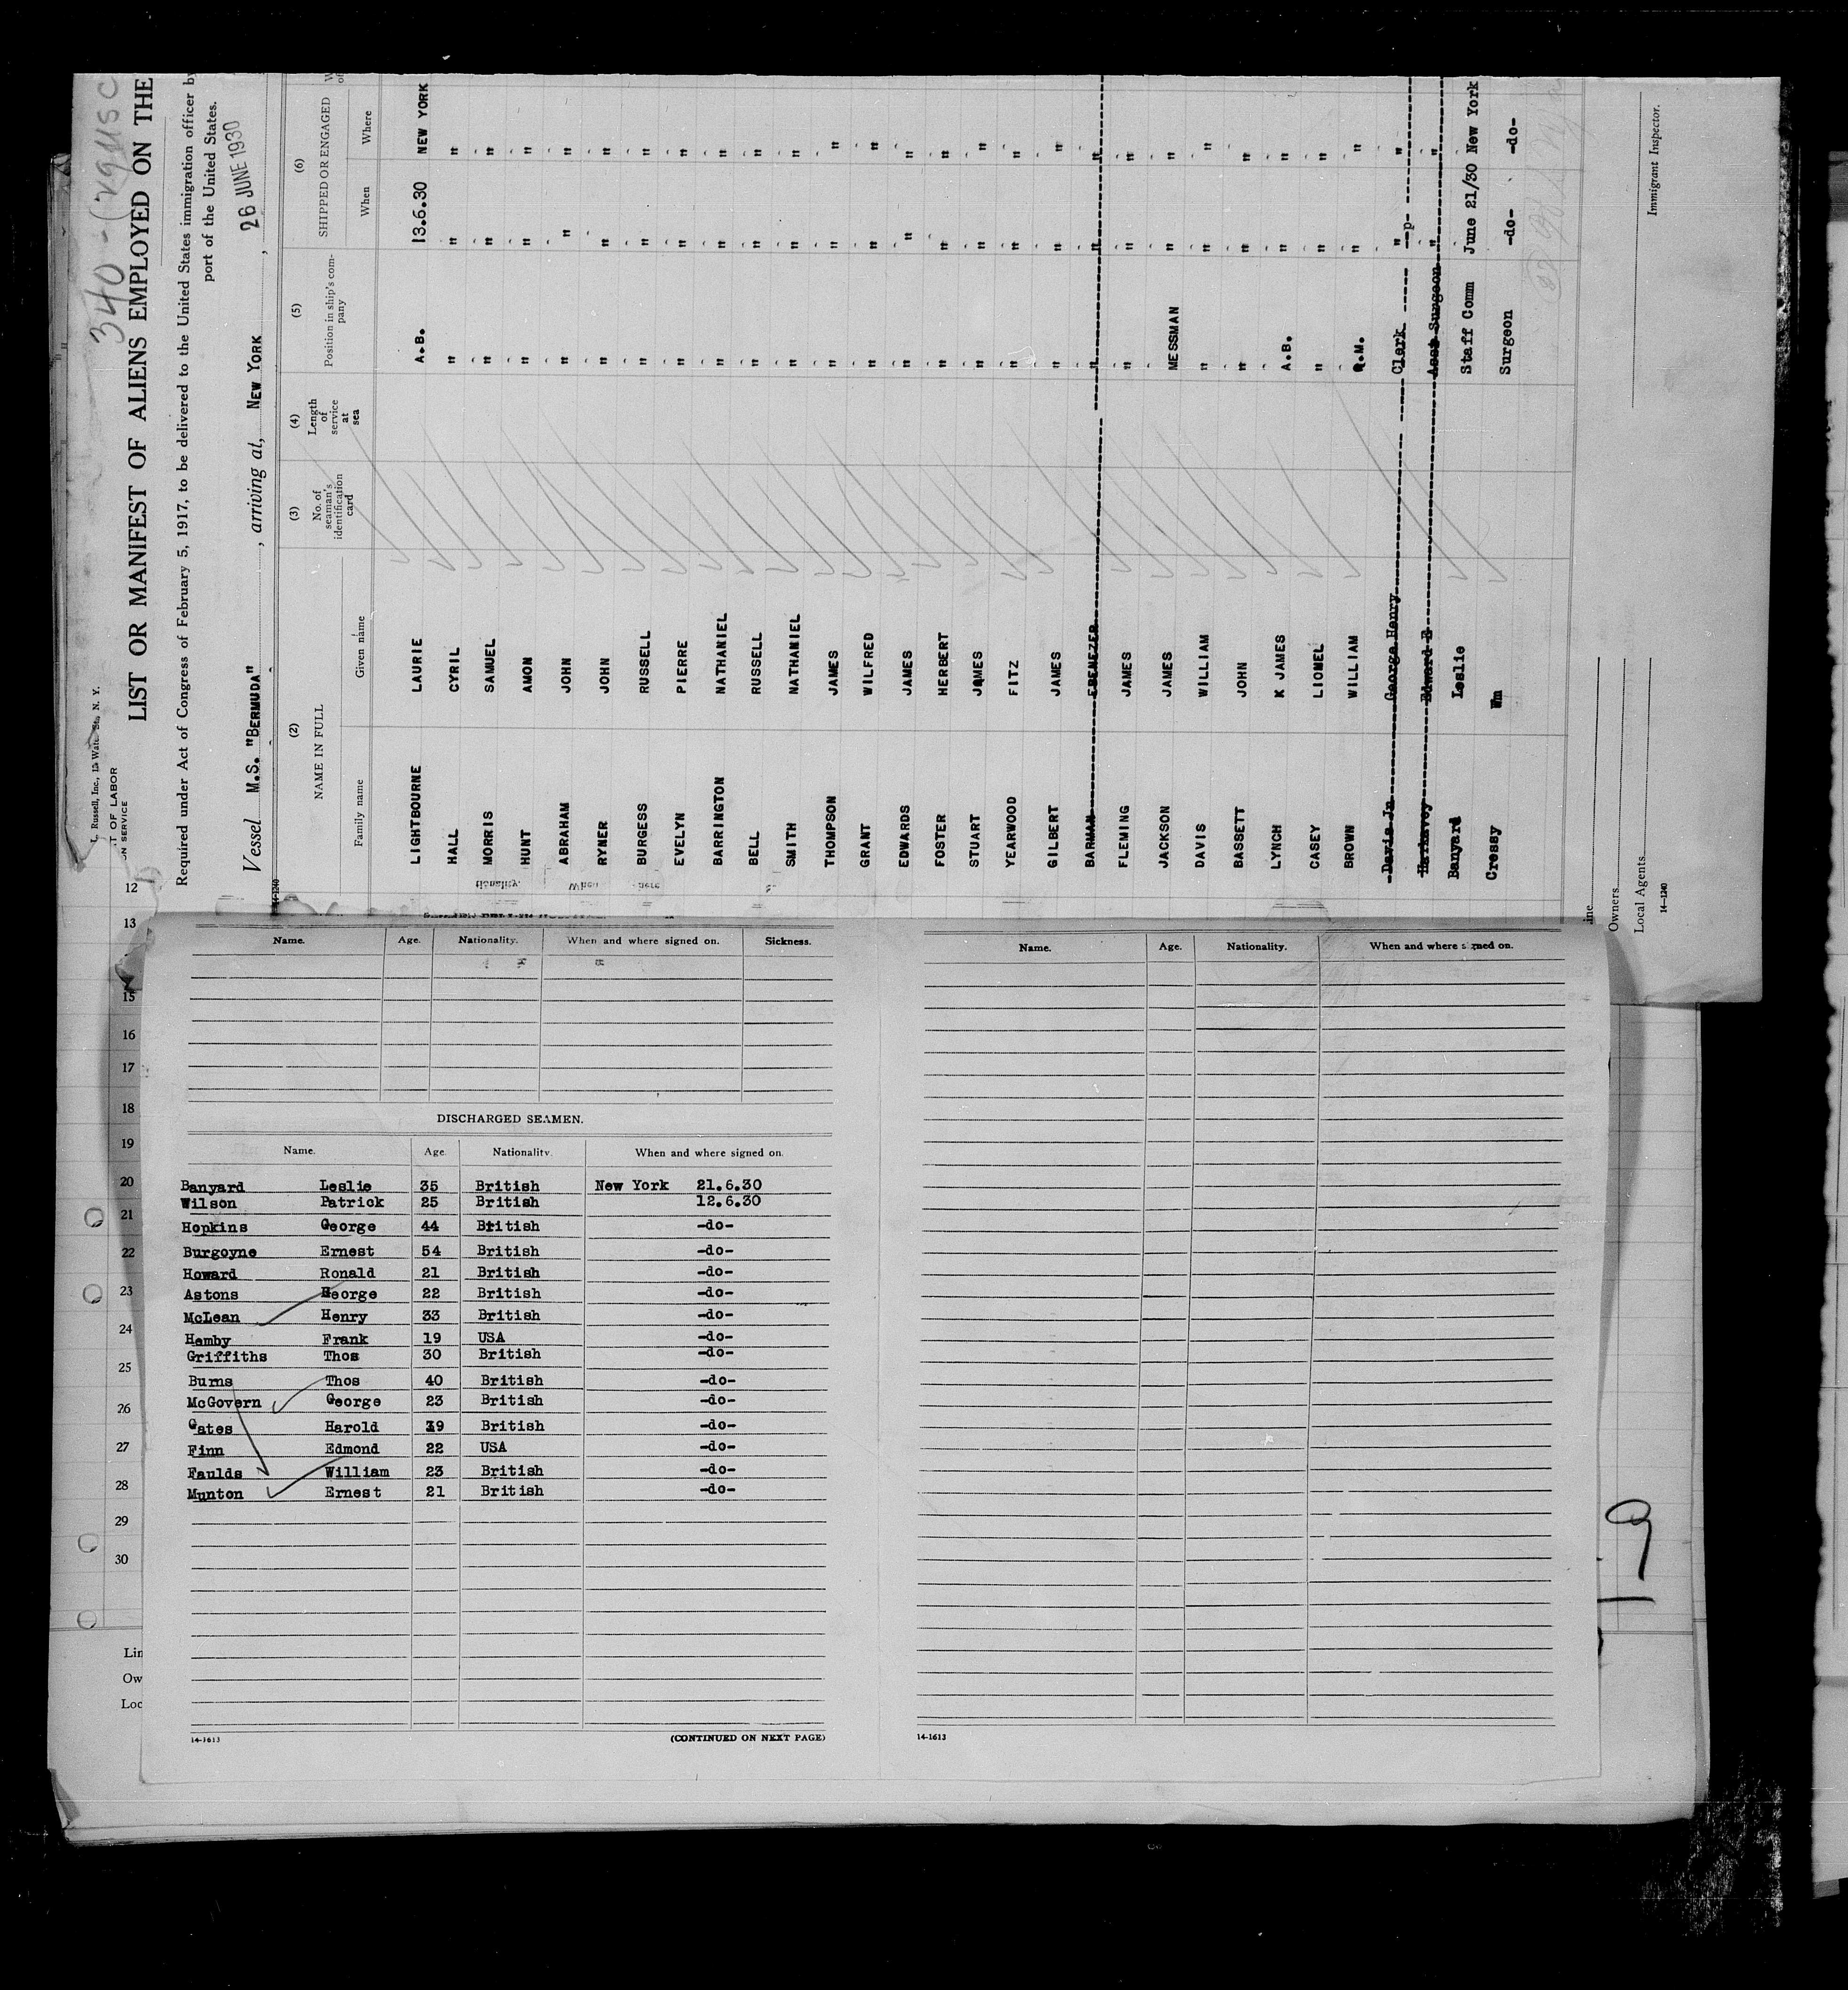 340 -
L. Russell, Inc., 15 Water St., N. Y.
T OF LABOR
ON SERVICE
LIST OR MANIFEST OF ALIENS EMPLOYED ON THE
Required under Act of Congress of February 5, 1917, to be delivered to the United States immigration officer by
port of the United States.
Vessel M.S. "BERMUDA", arriving at, NEW YORK, 26 JUNE 1930
(2) (3) (4) (5) (6)
NAME IN FULL No. of seaman's identification card Length of service at sea Position in ship's company SHIPPED OR ENGAGED
Family name Given name When Where
LIGHTBOURNE LAURIE A.B. 13.6.30 NEW YORK
HALL CYRIL " " "
MORRIS SAMUEL " " "
HUNT AMON " " "
ABRAHAM JOHN " " "
RYNER JOHN " " "
BURGESS RUSSELL " " "
EVELYN PIERRE " " "
BARRINGTON NATHANIEL " " "
BELL RUSSELL " " "
SMITH NATHANIEL " " "
THOMPSON JAMES " " "
GRANT WILFRED " " "
EDWARDS JAMES " " "
FOSTER HERBERT " " "
STUART JAMES " " "
YEARWOOD FITZ " " "
GILBERT JAMES " " "
BARMAN EBENEZER " " "
FLEMING JAMES " " "
JACKSON JAMES MESSMAN " "
DAVIS WILLIAM " " "
BASSETT JOHN " " "
LYNCH K JAMES A.B. " "
CASEY LIONEL " " "
BROWN WILLIAM Q.M. " "
Davis Jn George Henry Clerk " "
Harkavey Edward E Asst Surgeon " "
Banyard Leslie Staff Comm June 21/30 New York
Cressy Wm Surgeon -do- -do-
ine
Owners
Local Agents
14-1240
Immigrant Inspector.
12
13
15
16
17
18
19
20
21
22
23
24
25
26
27
28
29
30
Lin
Ow
Loc
Name. Age. Nationality. When and where signed on. Sickness.
DISCHARGED SEAMEN.
Name. Age. Nationality. When and where signed on.
Banyard Leslie 35 British New York 21.6.30
Wilson Patrick 25 British 12.6.30
Hopkins George 44 British -do-
Burgoyne Ernest 54 British -do-
Howard Ronald 21 British -do-
Astons George 22 British -do-
McLean Henry 33 British -do-
Hamby Frank 19 USA -do-
Griffiths Thos 30 British -do-
Burns Thos 40 British -do-
McGovern George 23 British -do-
Gates Harold 19 British -do-
Finn Edmond 22 USA -do-
Faulds William 23 British -do-
Munton Ernest 21 British -do-
14-1613 (CONTINUED ON NEXT PAGE)
Name. Age. Nationality. When and where signed on.
14-1613
9